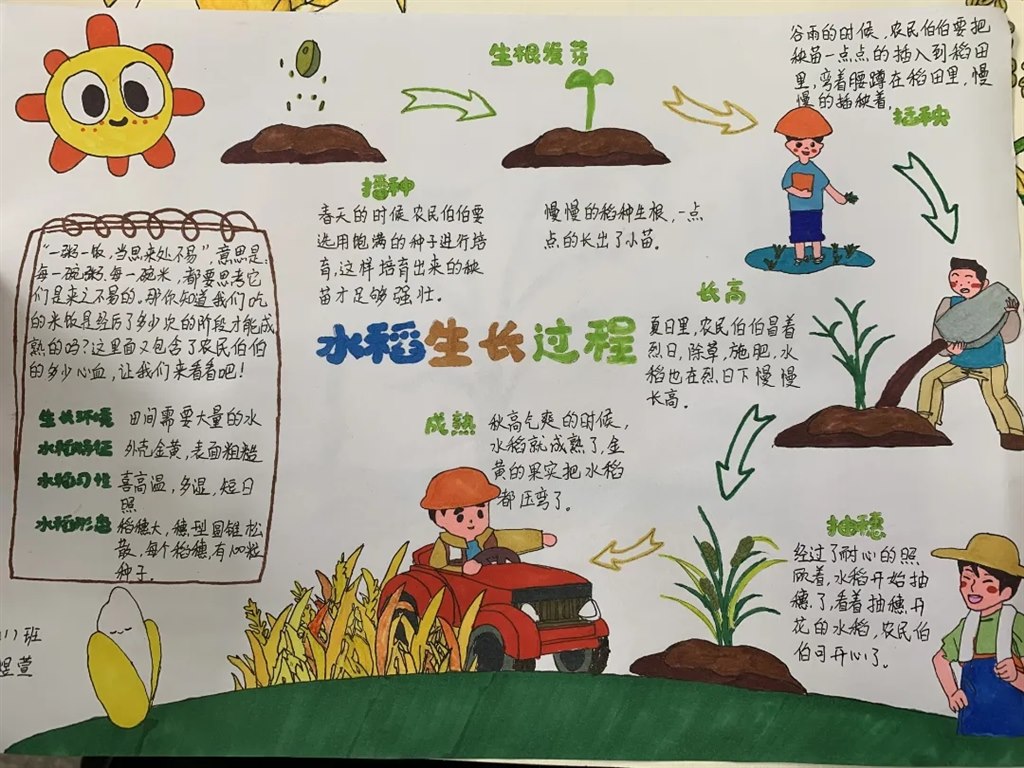 水稻生长过程
"一粥一饭，当思来处不易"，意思是：
每一碗粥，每一碗米，都要思考它
们是来之不易的。那你知道我们吃
的米饭是经历了多少次的阶段才能成
熟的吗？这里面又包含了农民伯伯
的多少心血，让我们来看看吧！
生长环境 田间需要大量的水
水稻特征 外壳金黄，表面粗糙
水稻习性 喜高温，多湿，短日
照
水稻形态 稻穗大，穗型圆锥松
散，每个稻穗，有100粒
种子。
播种
春天的时候，农民伯伯要
选用饱满的种子进行培
育，这样培育出来的秧
苗才足够强壮。
生根发芽
慢慢的稻种生根，一点
点的长出了小苗。
谷雨的时候，农民伯伯要把
秧苗一点点的插入到稻田
里，弯着腰蹲在稻田里，慢
慢的插秧着，
插秧
长高
夏日里，农民伯伯冒着
烈日，除草，施肥，水
稻也在烈日下慢慢
长高。
抽穗
经过了耐心的照
顾着，水稻开始抽
穗了，看着抽穗开
花的水稻，农民伯
伯可开心了。
成熟
秋高气爽的时候，
水稻就成熟了，金
黄的果实把水稻
都压弯了。
班
煜萱